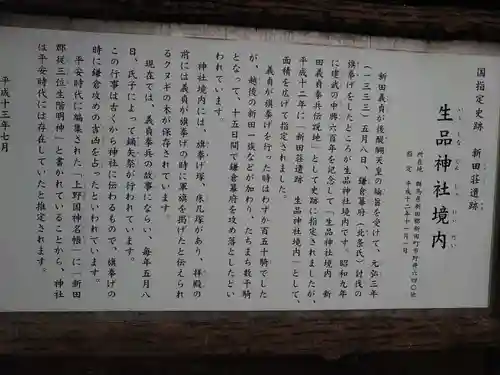 国指定史跡 新田荘遺跡
生品神社境内
いくしなじんじゃけいだい
所在地 群馬県新田郡新田町市野井六四〇他
指定 平成十二年十一月一日
新田義貞が後醍醐天皇の綸旨を受けて、元弘三年
(一三三三)五月八日、鎌倉幕府(北条氏)討伐の
旗挙げをしたところが生品神社境内です。昭和九年
に建武の中興六百年を記念して「生品神社境内 新
田義貞挙兵伝説地」として史跡に指定されましたが、
平成十二年に「新田荘遺跡 生品神社境内」として、
面積を広げて指定されました。
義貞が旗挙げを行った時はわずか百五十騎でした
が、越後の新田一族などが加わり、たちまち数千騎
となって、十五日間で鎌倉幕府を攻め落としたとい
われています。
神社境内には、旗挙げ塚、床几塚があり、拝殿の
前には義貞が旗挙げの時に軍旗を掲げたと伝えられ
るクヌギの木が保存されています。
現在では、義貞挙兵の故事にならい、毎年五月八
日、氏子によって鏑矢祭が行われています。
この行事は古くから神社に伝わるもので、旗挙げの
時に鎌倉攻めの吉凶を占ったといわれています。
平安時代に編集された「上野国神名帳」に「新田
郡従三位生階明神」と書かれていることから、神社
は平安時代には存在していたと推定されます。
平成十三年七月